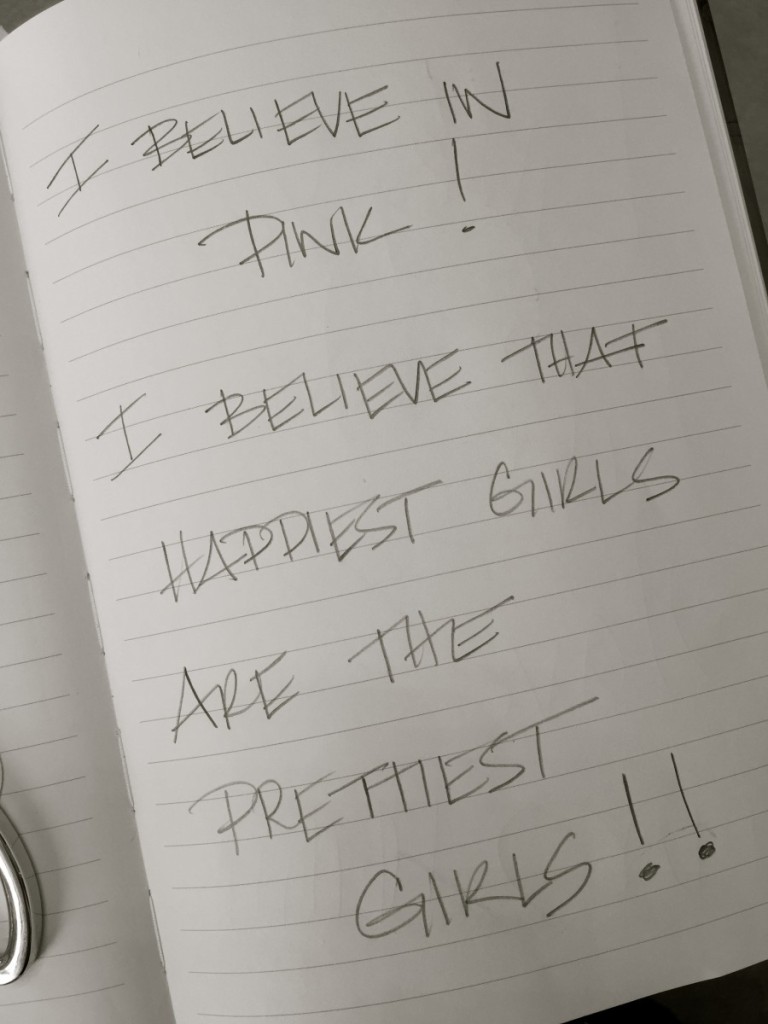 I BELIEVE IN
PINK!
I BELIEVE THAT
HAPPIEST GIRLS
ARE THE
PRETTIEST
GIRLS!!